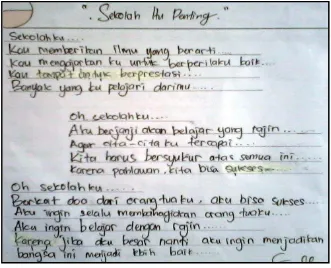 ". Sekolah Itu Penting."
Sekolahku....
Kau memberikan ilmu yang berarti....
Kau mengajarkan ku untuk berperilaku baik....
Kau tempat untuk berprestasi....
Banyak yang ku pelajari darimu.....
Oh sekolahku....
Aku berjanji akan belajar yang rajin.....
Agar cita-cita ku tercapai....
Kita harus bersyukur atas semua ini.....
Karena pahlawan, kita bisa sukses
Oh sekolahku....
Berkat doa dari orangtuaku, aku bisa sukses....
Aku ingin selalu membahagiakan orang tuaku....
Aku ingin belajar dengan rajin....
Karena jika aku besar nanti aku ingin menjadikan
bangsa ini menjadi lebih baik....